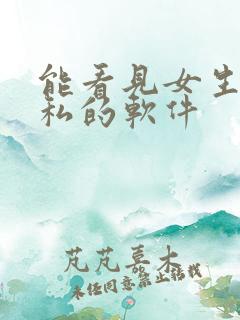 能看見女生
私的軟件
芃芃慕木
未经同意禁止搬栽